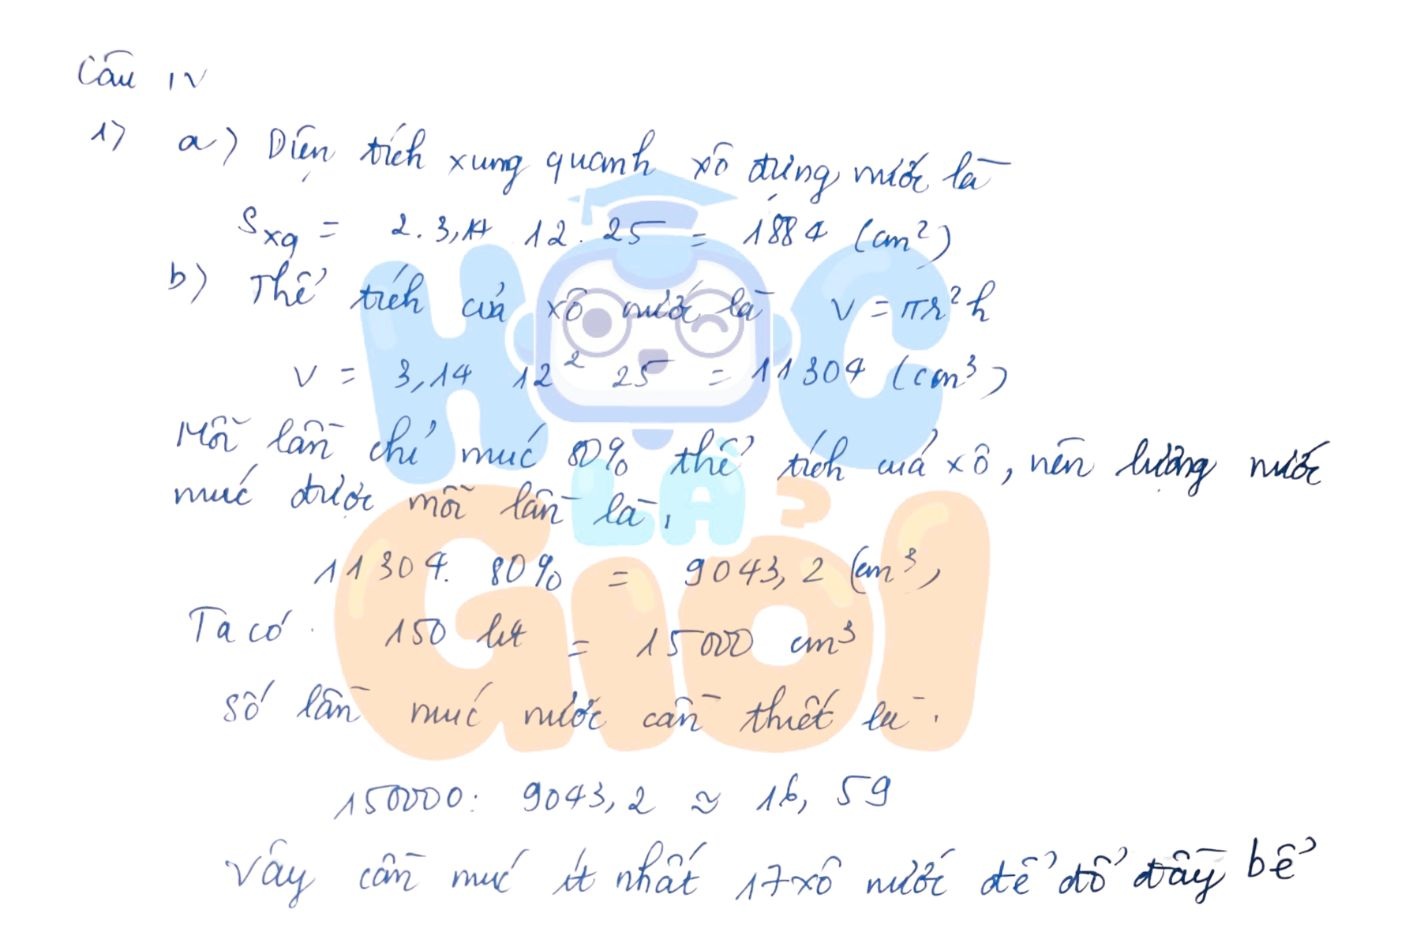 Câu IV
1) a) Diện tích xung quanh xô đựng nước là
Sxq = 2. 3,14 12. 25 = 1884 (cm²)
b) Thể tích của xô nước là V = πr²h
V = 3,14 12² 25 = 11304 (cm³)
Mỗi lần chỉ múc 80% thể tích của xô, nên lượng nước
múc được mỗi lần là,
11304. 80% = 9043,2 (cm³,
Ta có . 150 lít = 15000 cm³
Số lần múc nước cần thiết là .
150000: 9043,2 ≈ 16,59
Vậy cần múc ít nhất 17 xô nước để đổ đầy bể
HỌC
LÀ
GIỎI